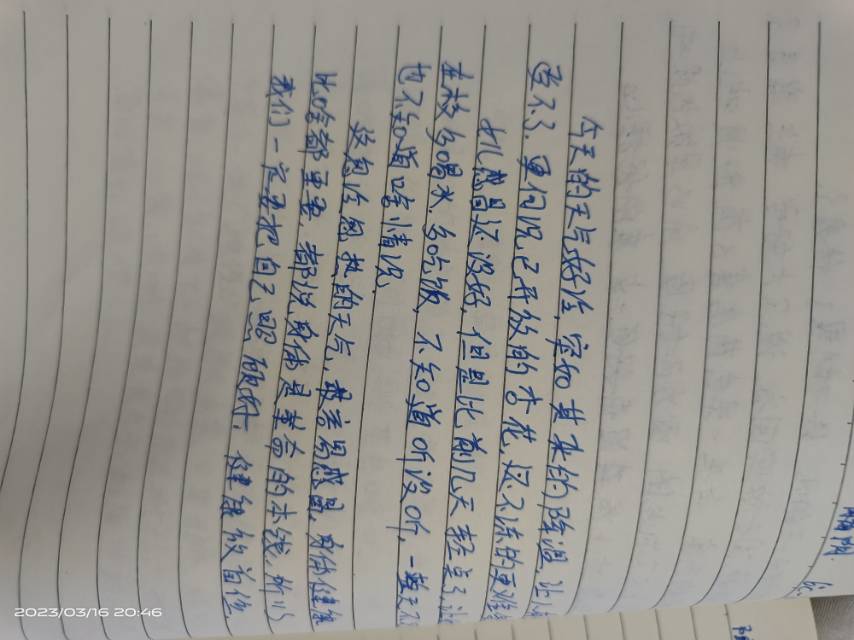 今天的天气好冷,突如其来的降温,让人
受不了,更何况已开放的杏花,还不冻的更难
扎 感冒还没好,但是比前几天轻点了,让
在校多喝水,多吃饭,不知道听没听,一整天
也不知道啥情况.
这忽冷忽热的天气,最容易感冒,身体健康
比啥都重要,都说身体是革命的本钱,所以
我们一定要把自己照顾好,健康放首位.
2023/03/16 20:46